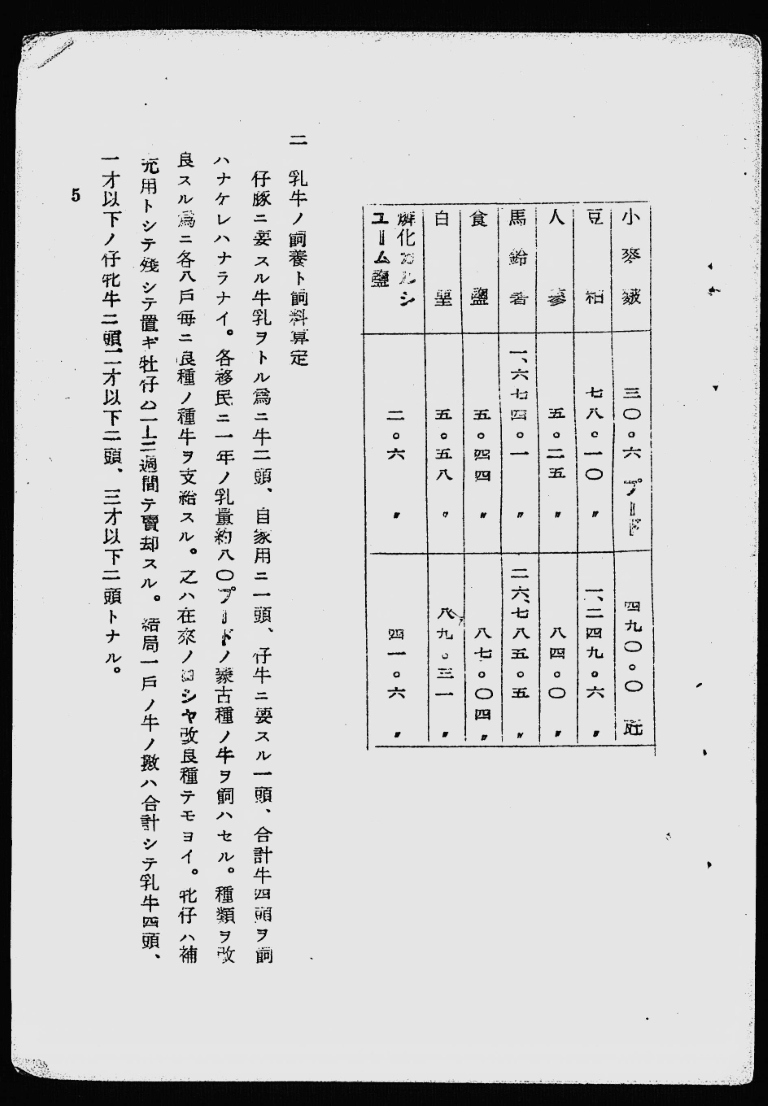 小麥麸 三〇。六 プード 四九〇。〇 瓩
豆粕 七八。一〇 〃 一、二四九。六 〃
人參 五。二五 〃 八四。〇 〃
馬鈴薯 一、六七四。一 〃 二六、七八五。五 〃
食鹽 五。四四 〃 八七。〇四 〃
白堊 五。五八 〃 八九。三一 〃
燐化カルシユーム鹽 二。六 〃 四一。六 〃
二 乳牛ノ飼養ト飼料算定
仔豚ニ要スル牛乳ヲトル爲ニ牛二頭、自家用ニ一頭、仔牛ニ要スル一頭、合計牛四頭ヲ飼
ハナケレハナラナイ。各移民ニ一年ノ乳量約八〇プードノ蒙古種ノ牛ヲ飼ハセル。種類ヲ改
良スル爲ニ各八戸毎ニ良種ノ種牛ヲ支給スル。之ハ在來ノロシヤ改良種テモヨイ。牝仔ハ補
充用トシテ殘シテ置ギ牡仔ハ一―二週間テ賣却スル。結局一戸ノ牛ノ數ハ合計シテ乳牛四頭、
一才以下ノ仔牝牛二頭二才以下二頭、三才以下二頭トナル。
5